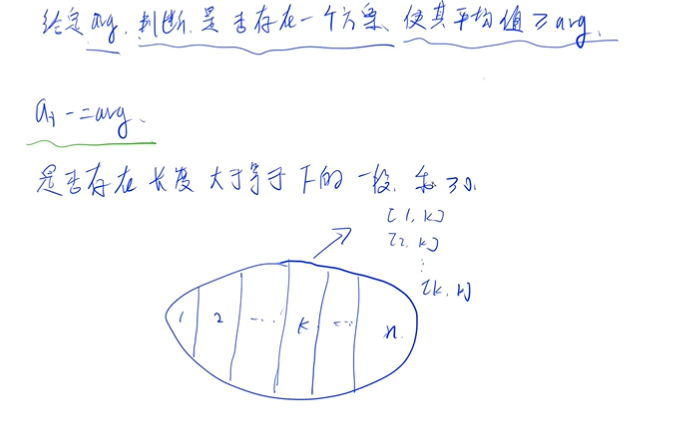 给定avg,判断是否存在一个方案,使其平均值≥avg.
ai -= avg.
是否存在长度大于等于F的一段,和≥0.
[1, k]
[2, k]
⋮
[k, k]
1 2 ... k ... n.